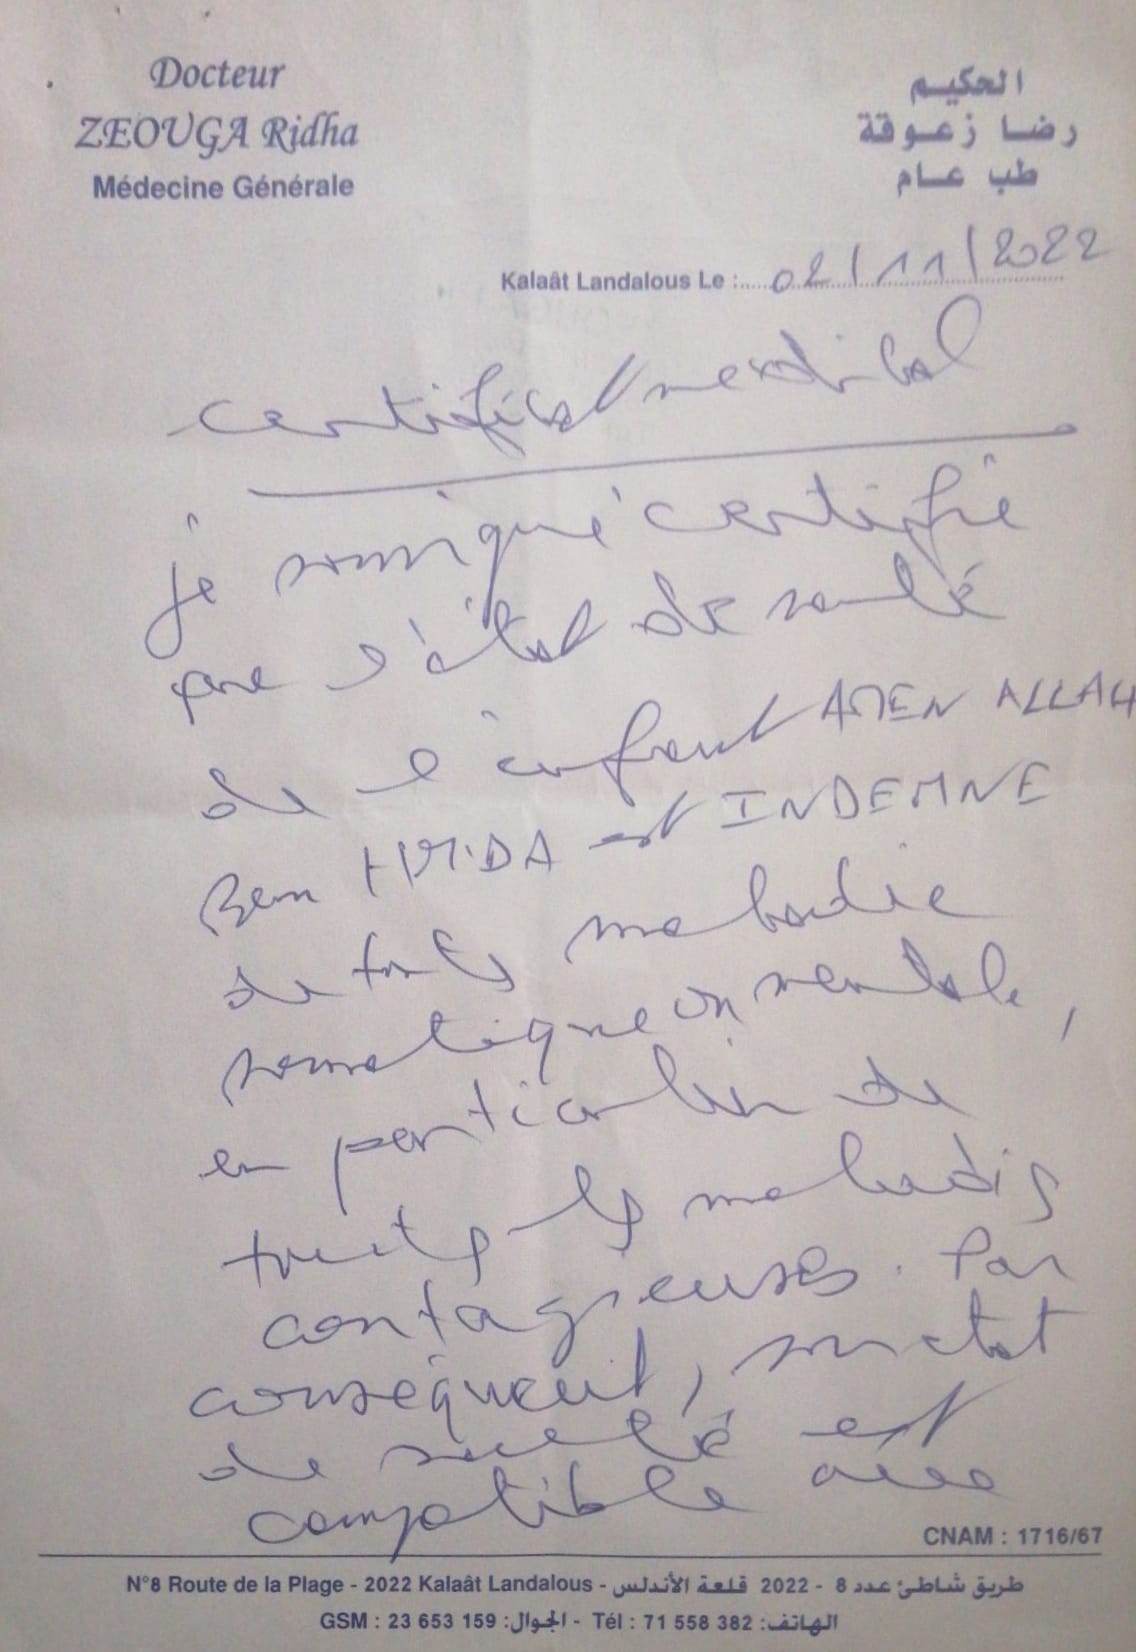 Docteur
ZEOUGA Ridha
Médecine Générale
الحكيم
رضا زعوقة
طب عام
Kalaât Landalous Le : 02/11/2022
certificat medical
je soussigné certifie
que l'état de santé
de l'enfant AMEN ALLAH
Ben HMIDA est INDEMNE
de toute maladie
somatique ou mentale,
en particulier de
toutes les maladies
contagieuses. Par
conséquent, son etat
de santé est
compatible avec
CNAM : 1716/67
N°8 Route de la Plage - 2022 Kalaât Landalous - طريق شاطئ عدد 8 - 2022 قلعة الأندلس
GSM : 23 653 159 :الجوال - Tél : 71 558 382 :الهاتف